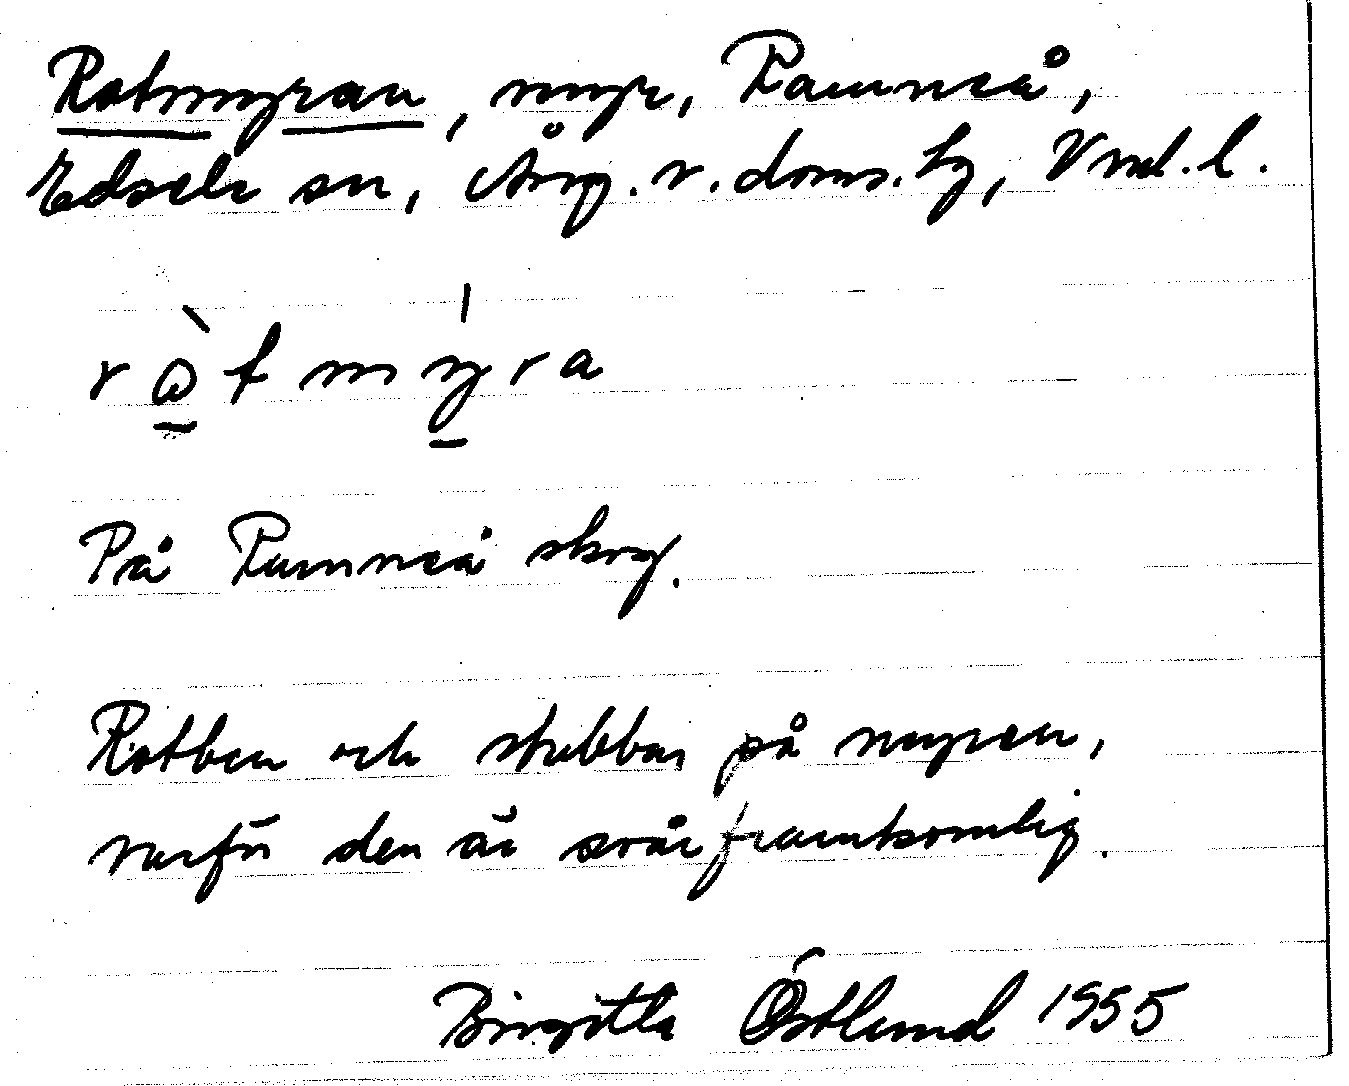 Rotmyran, myr, Ramnså,
Edsele sn, Ång. v. doms. tg, Vnl. l.
ròtmýra
På Ramnså skog.
Rotben och stubbar på myren,
varför den är svårframkomlig.
Birgitta Östlund 1955